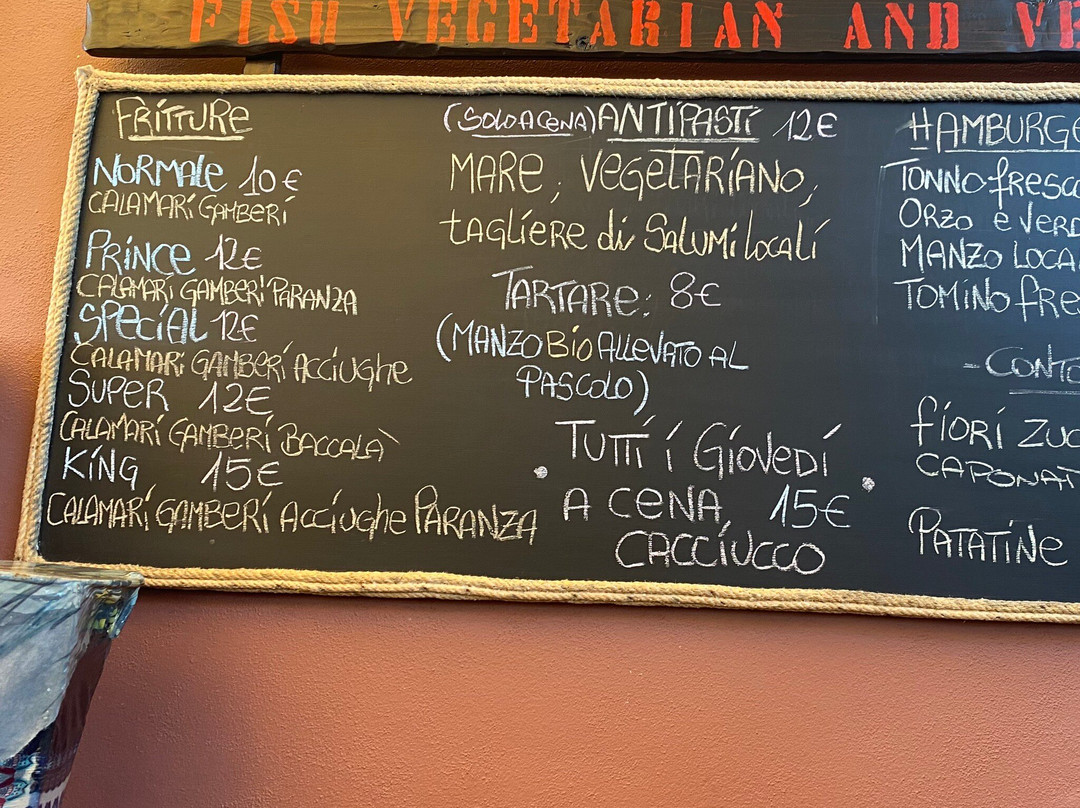 FISH VEGETARIAN AND
FRITTURE
NORMALE 10€
CALAMARI GAMBERI
PRINCE 12€
CALAMARI GAMBERI PARANZA
SPECIAL 12€
CALAMARI GAMBERI ACCIUGHE
SUPER 12€
CALAMARI GAMBERI BACCALÀ
KING 15€
CALAMARI GAMBERI ACCIUGHE PARANZA
(SOLO A CENA) ANTIPASTI 12€
MARE, VEGETARIANO,
TAGLIERE di SALUMI LOCALI
TARTARE: 8€
(MANZO BIO ALLEVATO AL
PASCOLO)
TUTTI i GIOVEDI
A CENA 15€
CACCIUCCO
HAMBURGE
TONNO fresco
ORZO e VERD
MANZO LOCA
TOMINO fres
- CONTO
fiori ZUC
CAPONAT
PATATINE